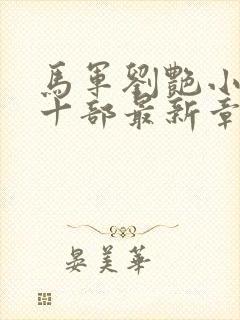 馬軍劉艷小
十部最新章
晏美華